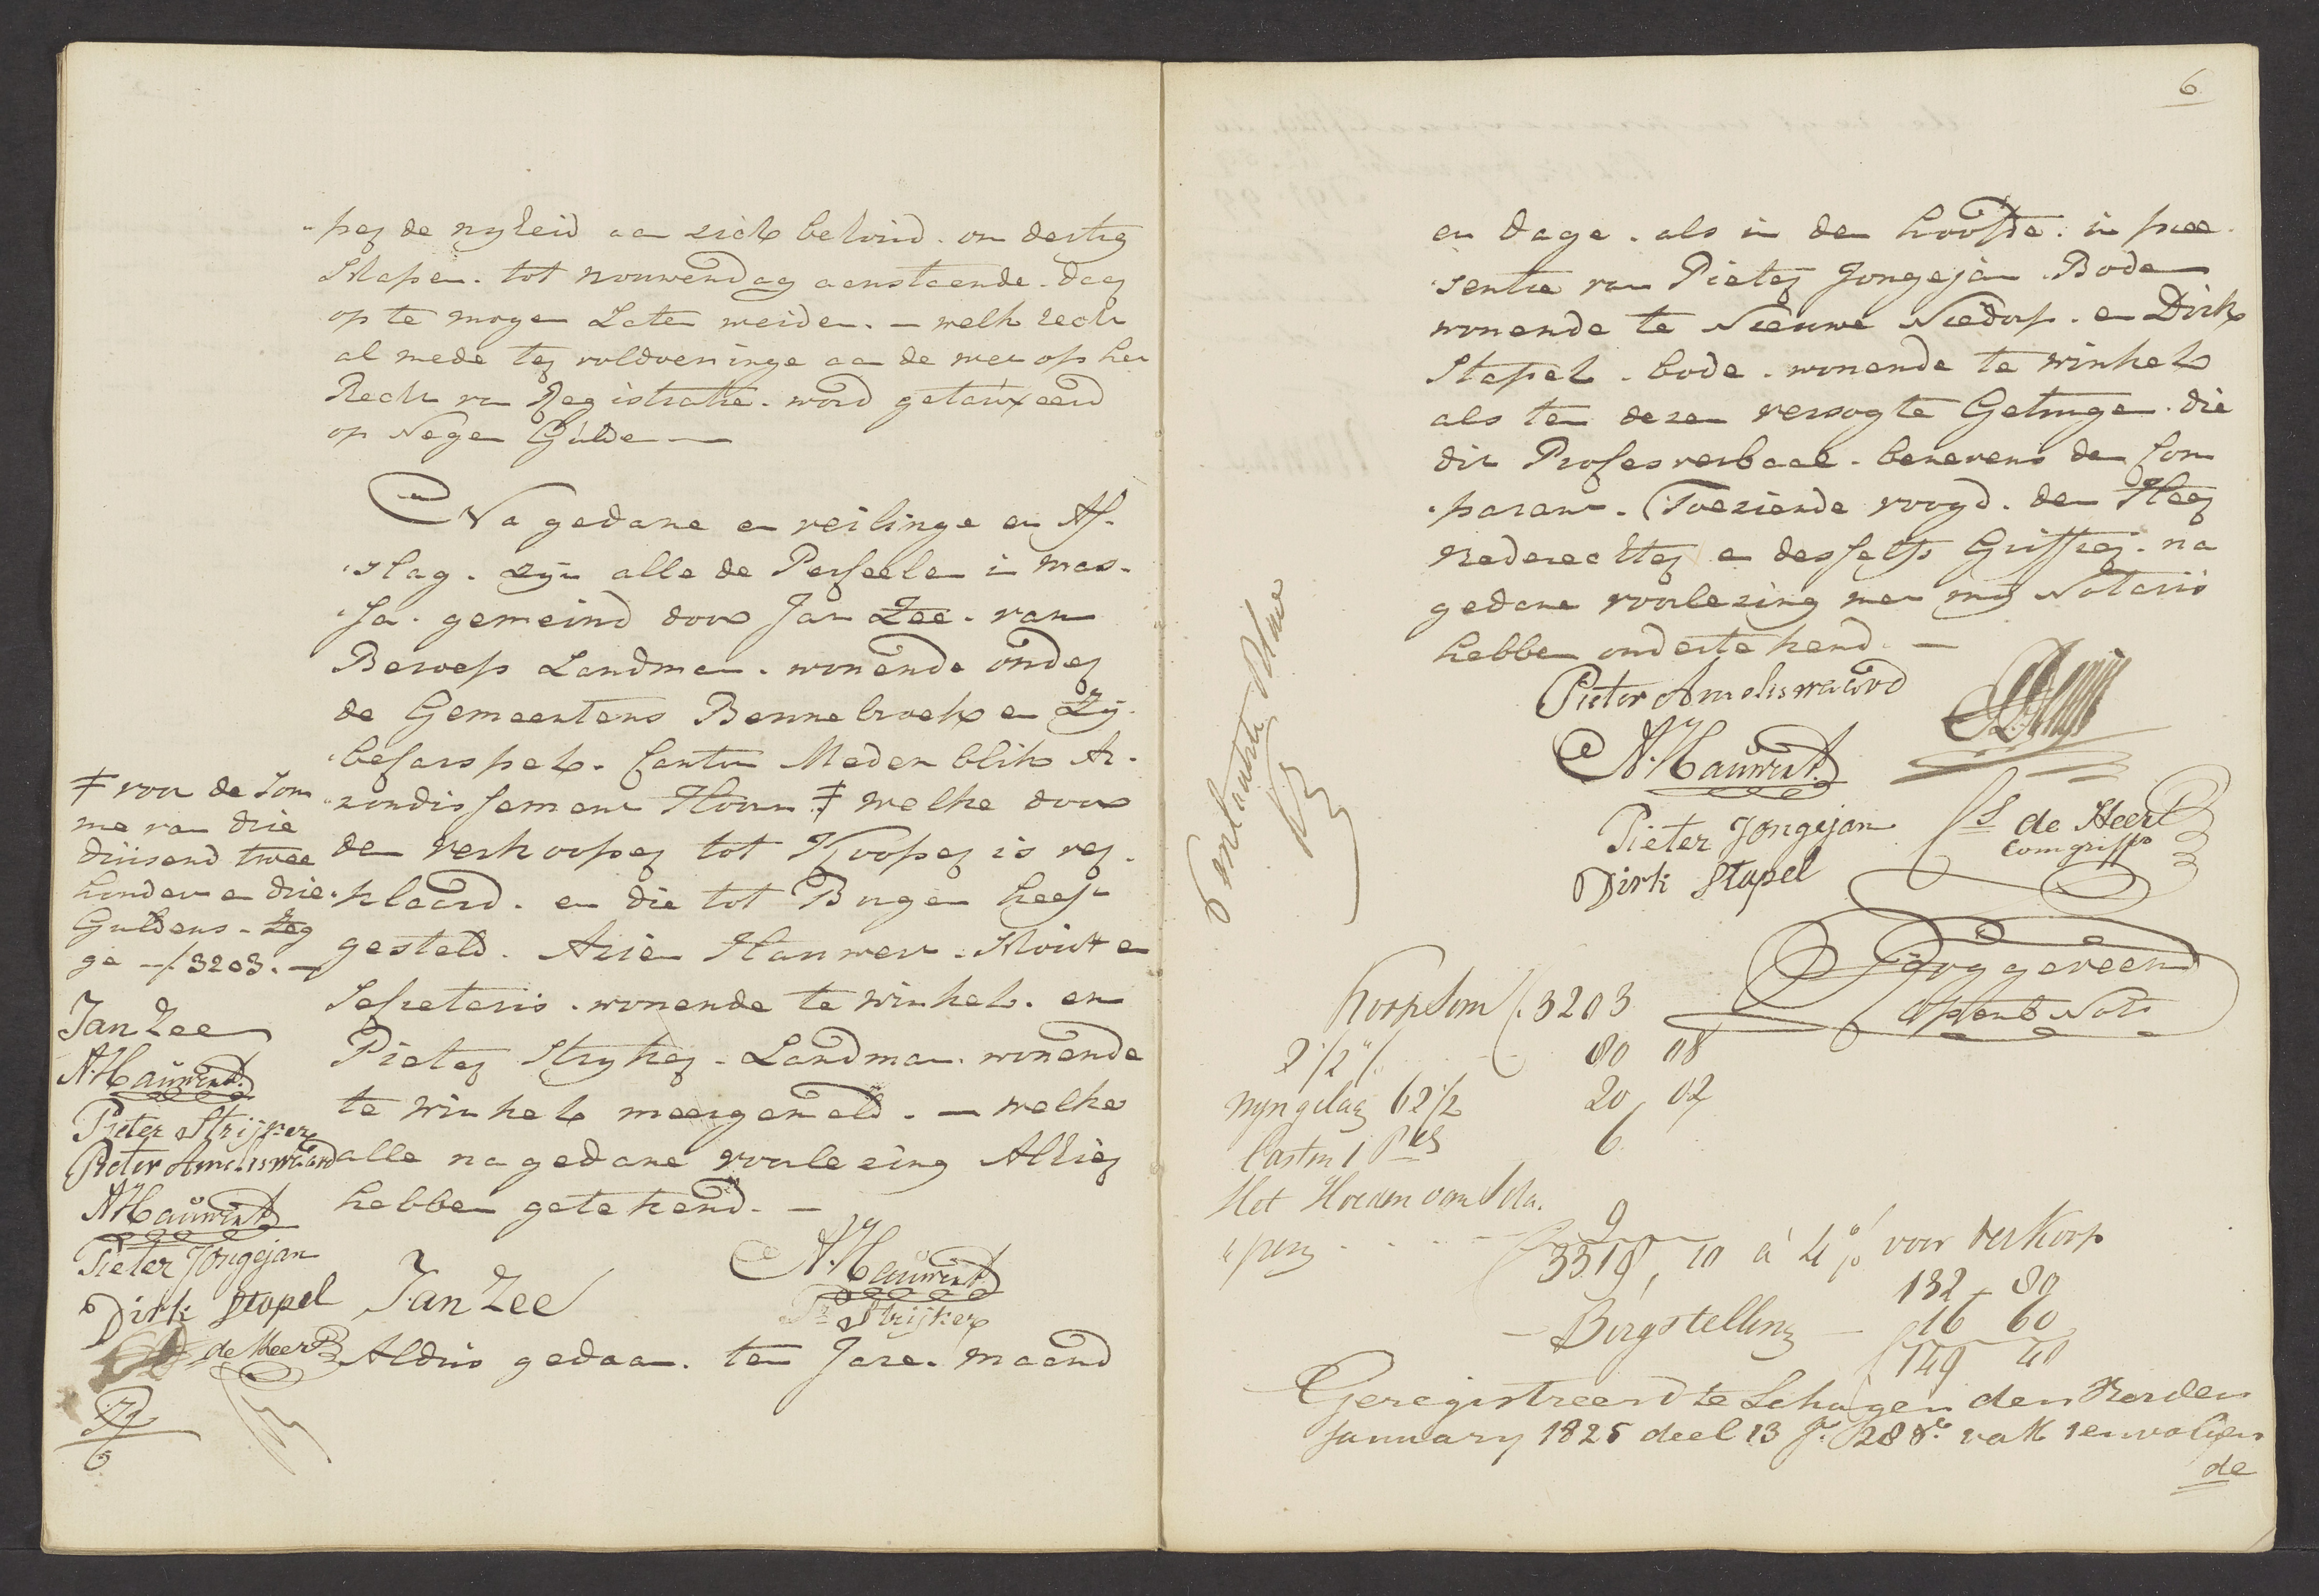 per de nyheid aan zich behoud. om dertig
Schapen. tot nouwendag aenstaende. daer
op te mogen Laten weiden. — welk recht
al mede ter voldoeninge aan de wet op het
Recht van Registratie. word getauxeerd
op Negen Gulden —
Na gedane en veilinge en Af-
slag. zijn alle de Perseelen in mas-
sa. gemeind door Jan Zee. van
Beroep Landman. wonende onder
de Gemeentens Benne broek en Zy-
becarspel. Canton Medenblik Ar-
rondissement Hoorn ‡ welke door
den verkooper tot Kooper is ver-
klaard. en die tot Burgen heeft
gesteld. Arien Hauwert. Schout en
Secretaris. wonende te Winkel. en
Pieter Stryker. Landman. wonende
te Winkel meergemeld. — welke
alle na gedane voorlezing Alhier
hebben getekend. —
‡ voor de Som
me van drie
duisend twee
hondert en drie
Guldens. Zeg
ge — f 3203. —
Jan Zee
A. Hauwert
Pieter Strijker
Pieter Ameliswaard
A Hauwert
Pieter Jongejan
Dirk Stapel
de Heer
Jan Zee
A. Hauwert
Pr Strijker
Aldus gedaan. ten Jare. maand
6
en dage. als in den hoofde. in pree-
sentie van Pieter Jongejan. Bode
wonende te Nieuwe Niedorp. en Dirk
Stapel. bode. wonende te Winkel
als ten dezen versogte Getuigen. die
dit Proses verbaal. benevens den Com
parant. Toeziende voogd. den Heer
vrederechter en desselfs Griffier. na
gedane voorlezing met my Notaris
hebben ondertekend. —
Pieter Ameliswaard
A. Hauwert
Pieter Jongejan
S de Heer
Comgriffr
Dirk Stapel
Koopsom f 3203
2 1/2 % 80 08
Nyngelag 62 1/2 20 02
Casten 1 6
Het Hoeden van Scha.
pen 9
3318, 10 à 4 % voor verkoop
132 – 80
– Borgstelling – 16 60
f 149 40
Geregistreerd te Schagen den Vierden
January 1825 deel 13 fo. 28 vak 1 en volgen
de